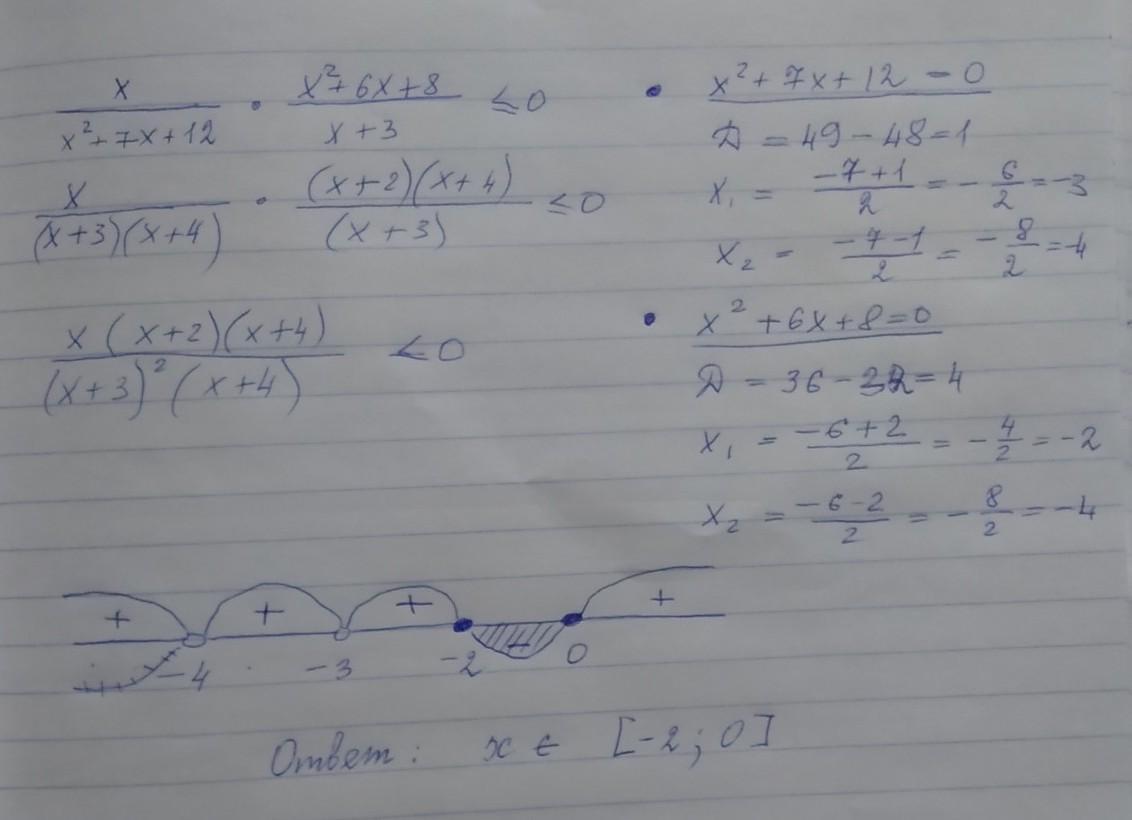 x/(x²+7x+12) · (x²+6x+8)/(x+3) ≤ 0
x/((x+3)(x+4)) · ((x+2)(x+4))/((x+3)) ≤ 0
(x(x+2)(x+4))/((x+3)²(x+4)) < 0
• x²+7x+12 = 0
Д = 49 − 48 = 1
x₁ = (−7+1)/2 = −6/2 = −3
x₂ = (−7−1)/2 = −8/2 = −4
• x²+6x+8=0
Д = 36 − 32 = 4
x₁ = (−6+2)/2 = −4/2 = −2
x₂ = (−6−2)/2 = −8/2 = −4
+ + + − +
−4 −3 −2 0
Ответ: x ∈ [−2; 0]